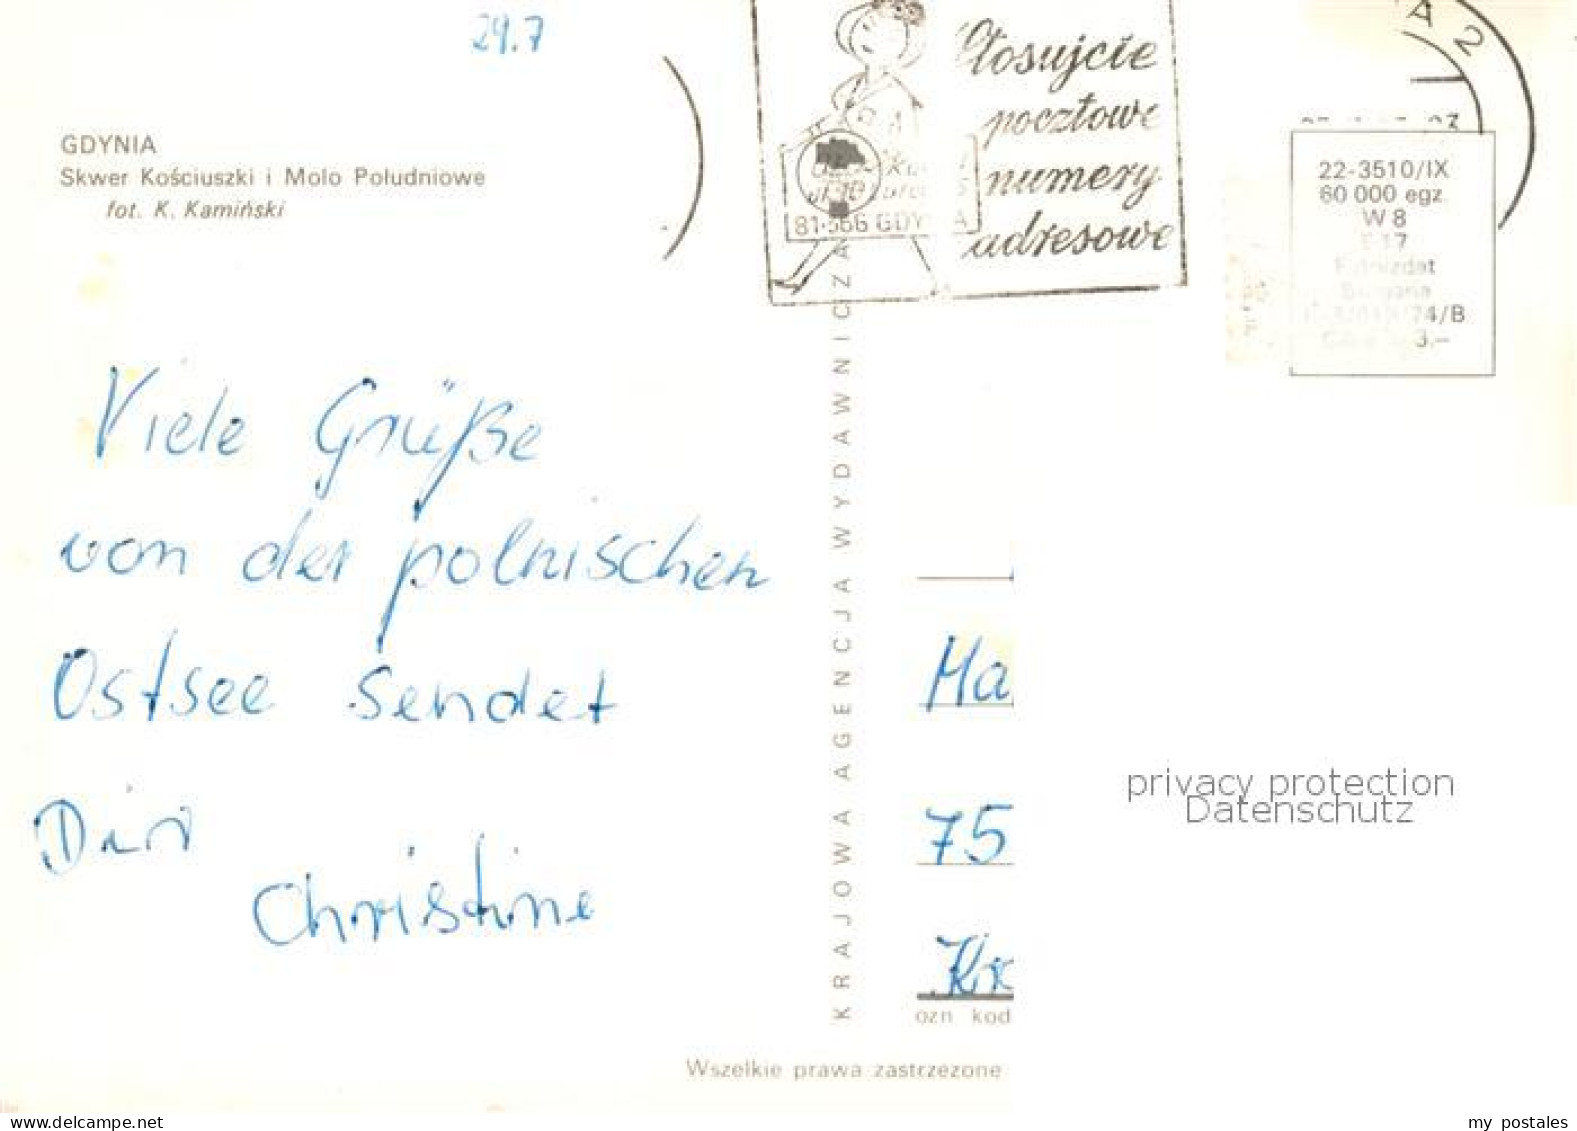 29.7
GDYNIA
Skwer Kościuszki i Molo Południowe
fot. K. Kamiński
pocztowe
numery
adresowe
A 2
81-566 GDYNIA
22-3510/IX
60 000 egz.
W 8
74/B
3.–
Viele Grüße
von der polnischen
Ostsee sendet
Dirs
Christine
KRAJOWA AGENCJA WYDAWNICZA
Ma
75
privacy protection
Datenschutz
ozn kod
Wszelkie prawa zastrzezone
www.delcampe.net
my_postales